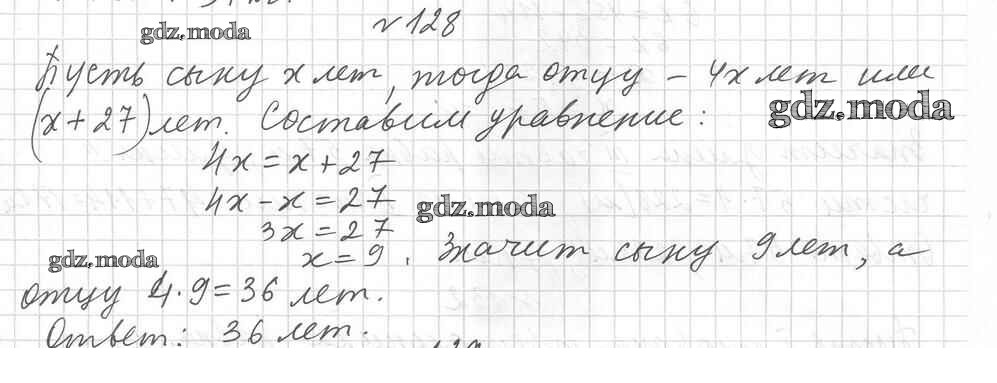 №128
gdz.moda
Пусть сыну x лет, тогда отцу – 4x лет или
(x + 27) лет. Составим уравнение:
gdz.moda
4x = x + 27
4x - x = 27
gdz.moda
3x = 27
x = 9. Значит сыну 9 лет, а
gdz.moda
отцу 4·9 = 36 лет.
Ответ: 36 лет.